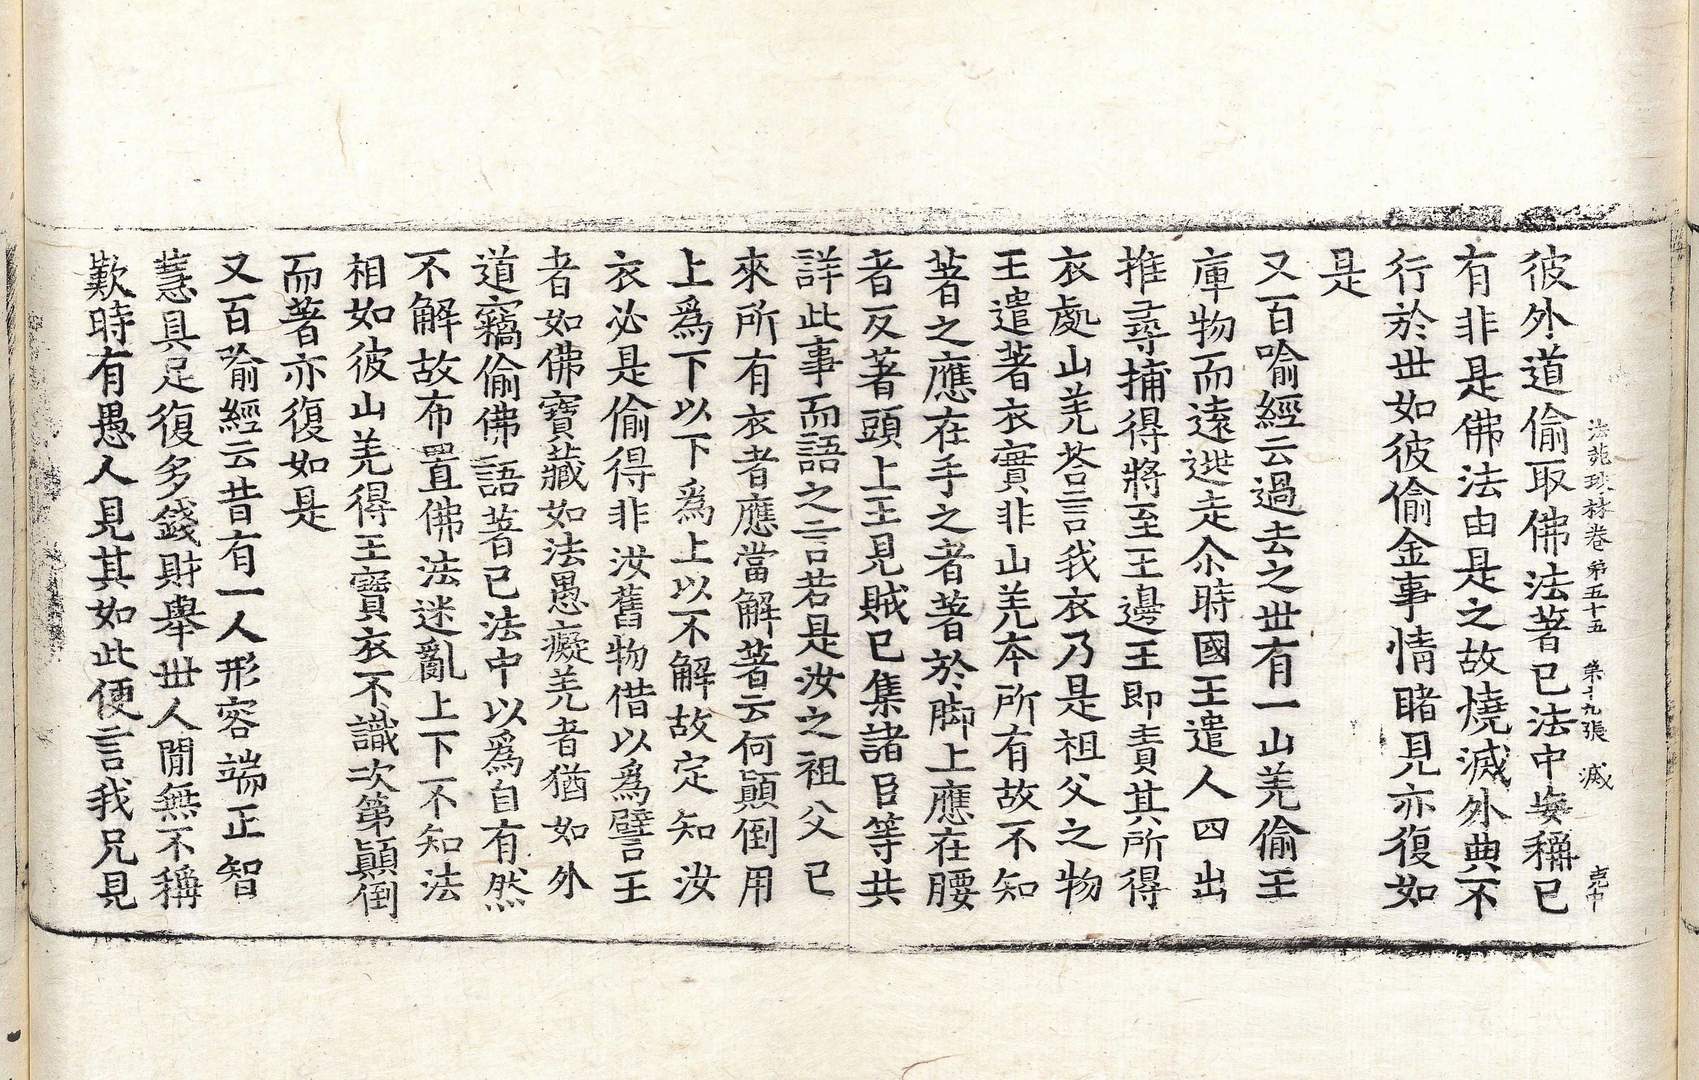 法苑珠林卷第五十五 第十九張 滅 克中
彼外道偷取佛法著已法中妄稱已
有非是佛法由是之故燒滅外典不
行於世如彼偷金事情睹見亦復如
是
又百喻經云過去之世有一山羌偷王
庫物而遠逃走尒時國王遣人四出
推尋捕得將至王邊王即責其所得
衣處山羌荅言我衣乃是祖父之物
王遣著衣實非山羌夲所有故不知
著之應在手之者著於脚上應在腰
者反著頭上王見賊已集諸臣等共
詳此事而語之言若是汝之祖父已
來所有衣者應當解著云何顛倒用
上爲下以下爲上以不解故定知汝
衣必是偷得非汝舊物借以爲譬王
者如佛寶藏如法愚癡羌者猶如外
道竊偷佛語著已法中以爲自有然
不解故布置佛法迷亂上下不知法
相如彼山羌得王寶衣不識次第顛倒
而著亦復如是
又百喻經云昔有一人形容端正智
慧具足復多錢財舉世人閒無不稱
歎時有愚人見其如此便言我兄見